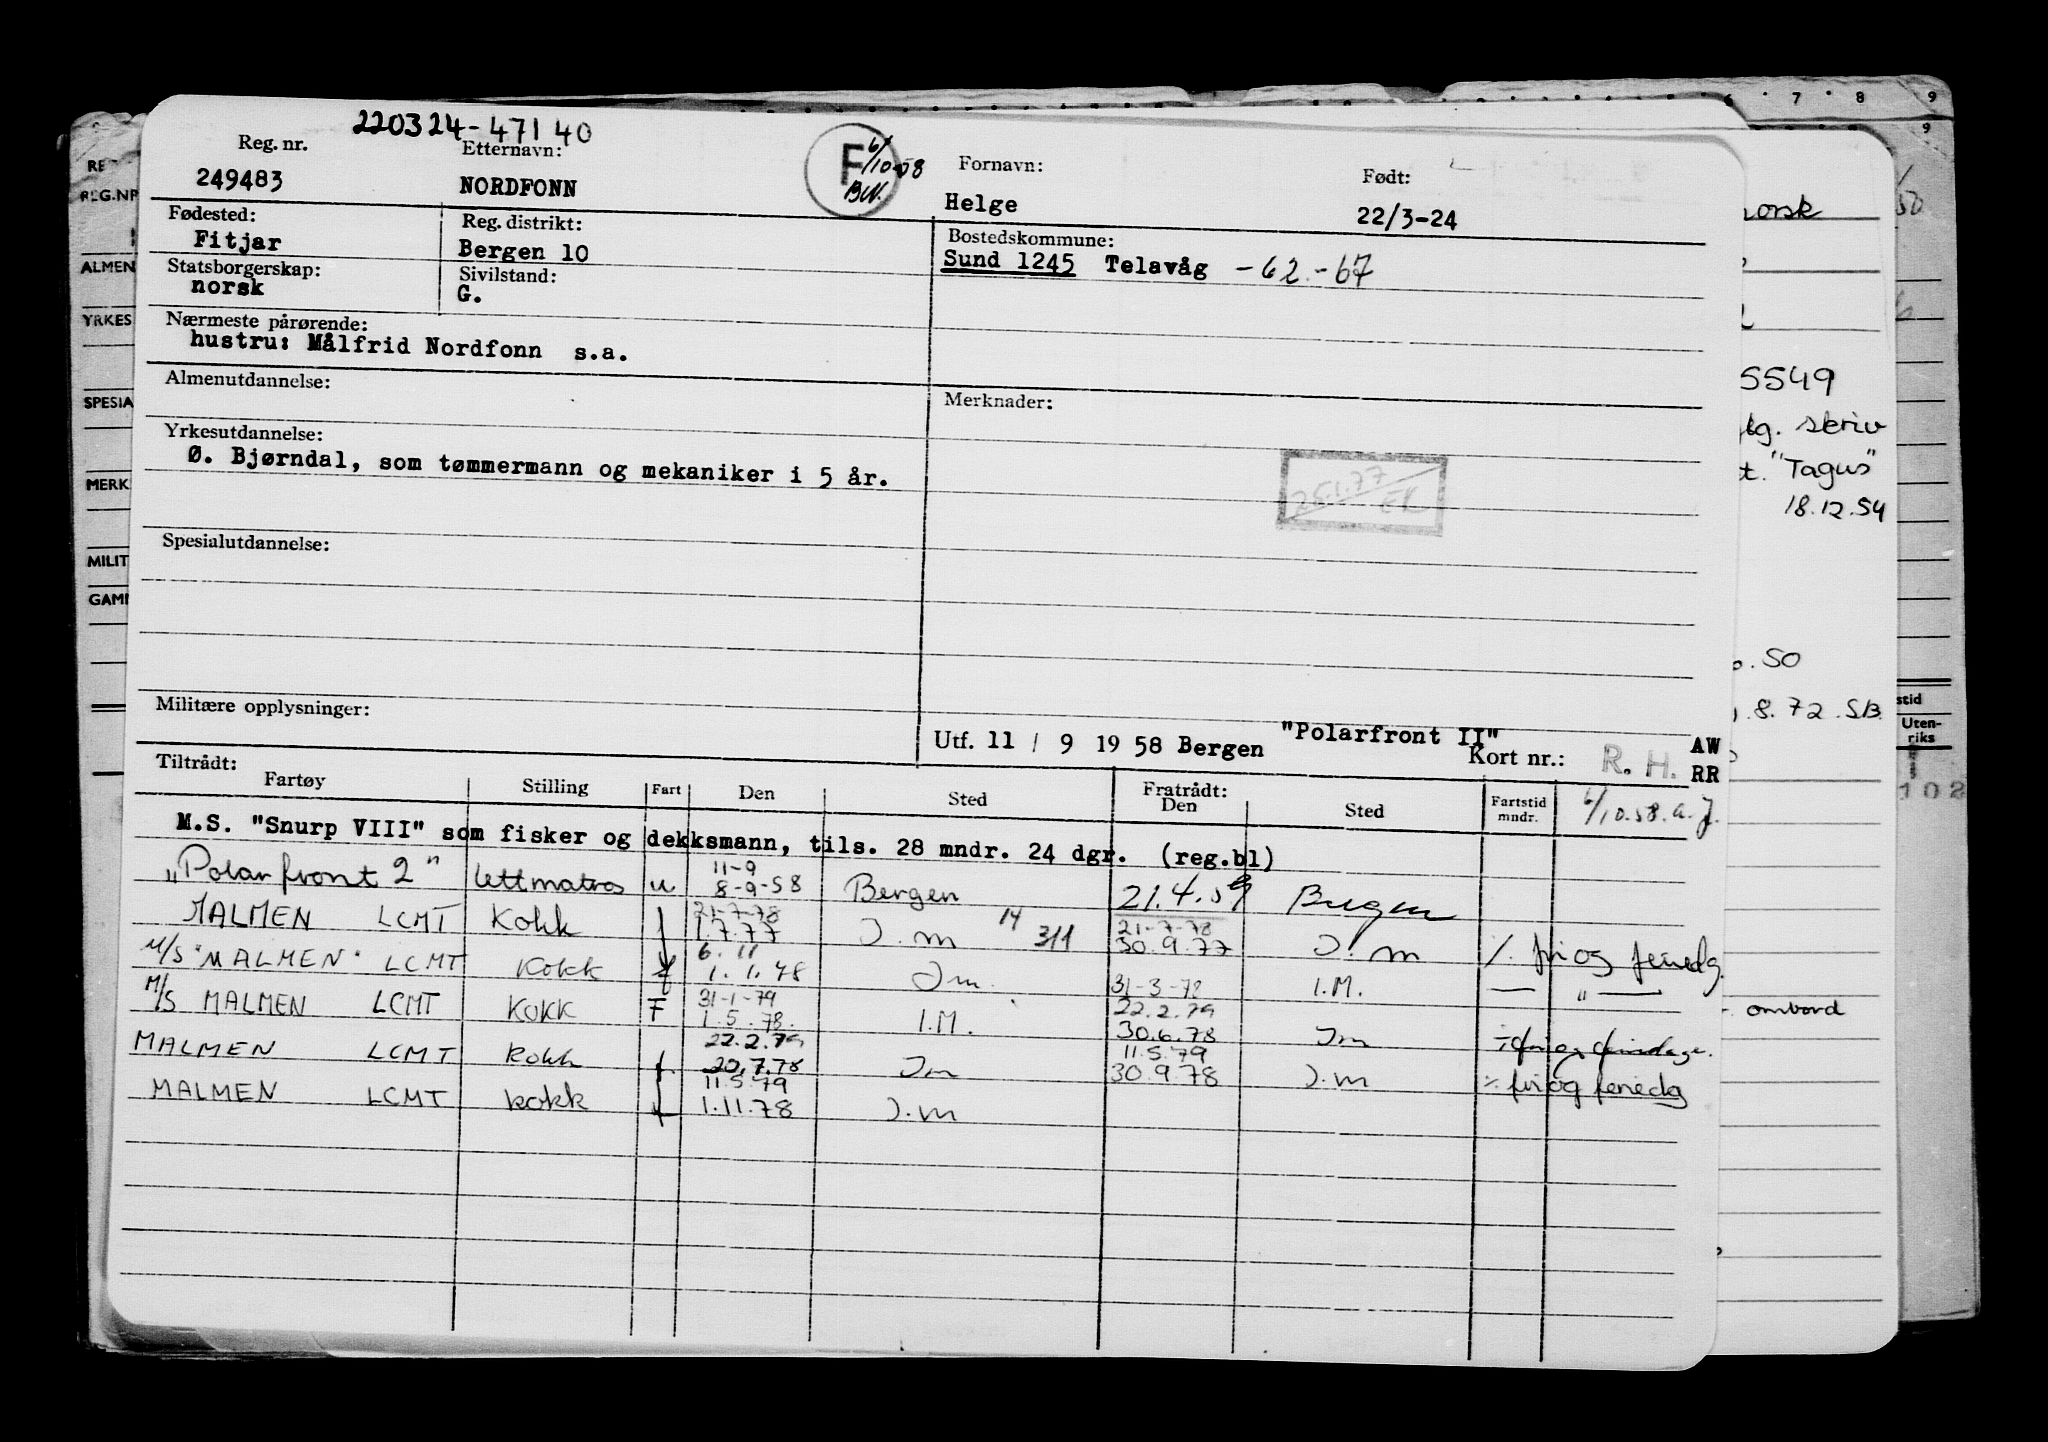 220324-47140
Reg. nr. Etternavn: Fornavn: Født:
249483 NORDFONN Helge 22/3-24
F 6/10-58 BW.
Fødested: Reg. distrikt: Bostedskommune:
Fitjar Bergen 10 Sund 1245 Telavåg -62.-67
Statsborgerskap: Sivilstand:
norsk G.
Nærmeste pårørende:
hustru: Målfrid Nordfonn s.a.
Almenutdannelse: Merknader:
Yrkesutdannelse:
Ø. Bjørndal, som tømmermann og mekaniker i 5 år.
25.1.77 EK
Spesialutdannelse:
Militære opplysninger:
Utf. 11 / 9 19 58 Bergen "Polarfront II" Kort nr.: R. H. AW RR
Tiltrådt: Fratrådt:
Fartøy Stilling Fart Den Sted Den Sted Fartstid mndr. 6/10.58.a.J.
M.S. "Snurp VIII" som fisker og dekksmann, tils. 28 mndr. 24 dgr. (reg.bl)
"Polarfront 2" lettmatros u 11-9 8-9-58 Bergen 21.4.59 Bergen
MALMEN LCMT Kokk f 21-7-78 1.7.77 J.m 14 311 21-7-78 30.9.77 J.m % fri og feriedg.
M/S "MALMEN" LCMT Kokk f 6.11 1.1.78 Jm. 31-3-78 I.M. — " —
M/S MALMEN LCMT KOKK F 31-1-79 1.5.78. I.M. 22.2.79 30.6.78 Jm
MALMEN LCMT Kokk f 22.2.79 20.7.78 Jm 11.5.79 30.9.78 J.m % fri og feriedg
MALMEN LCMT kokk f 11.5.79 1.11.78 J.m
REG.NR
ALMEN
YRKES
SPESIA
MERK
MILIT
GAMM
6 7 8 9
9
norsk
50
5549
skriv
"Tagus"
18.12.54
.50
.8.72.SB.
stid
Uten-
riks
102
ombord